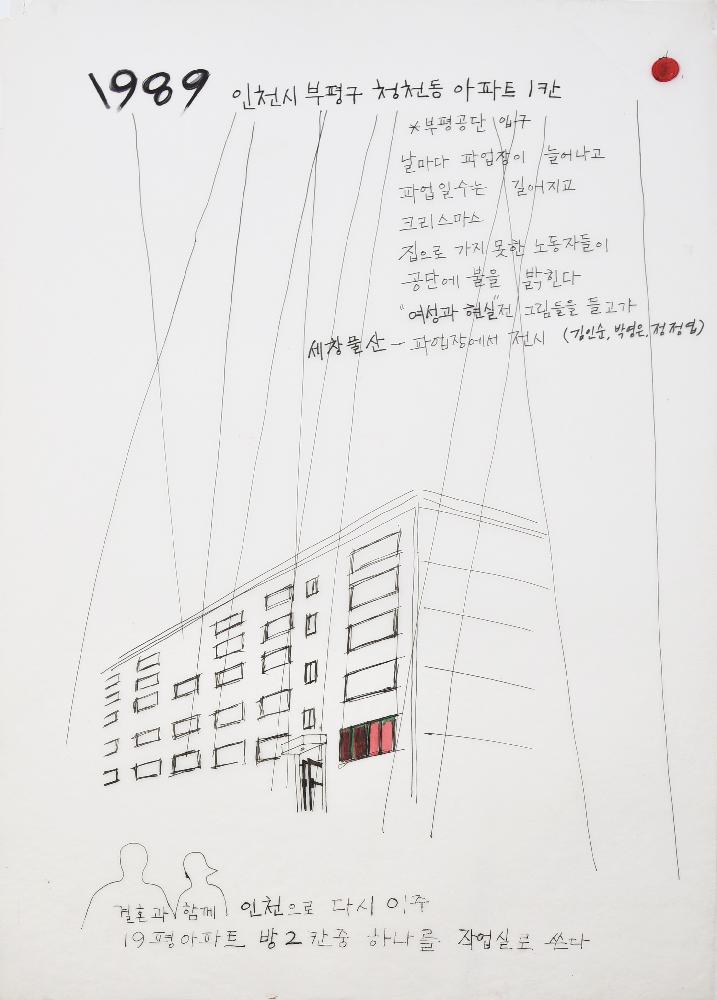 1989 인천시 부평구 청천동 아파트 1칸
*부평공단 입구
날마다 파업장이 늘어나고
파업일수는 길어지고
크리스마스
집으로 가지 못한 노동자들이
공단에 불을 밝힌다
"여성과 현실"전 그림들을 들고가
세창물산 - 파업장에서 전시 (김인순, 박영은, 정정엽)
결혼과 함께 인천으로 다시 이주
19평아파트 방2칸중 하나를 작업실로 쓰다